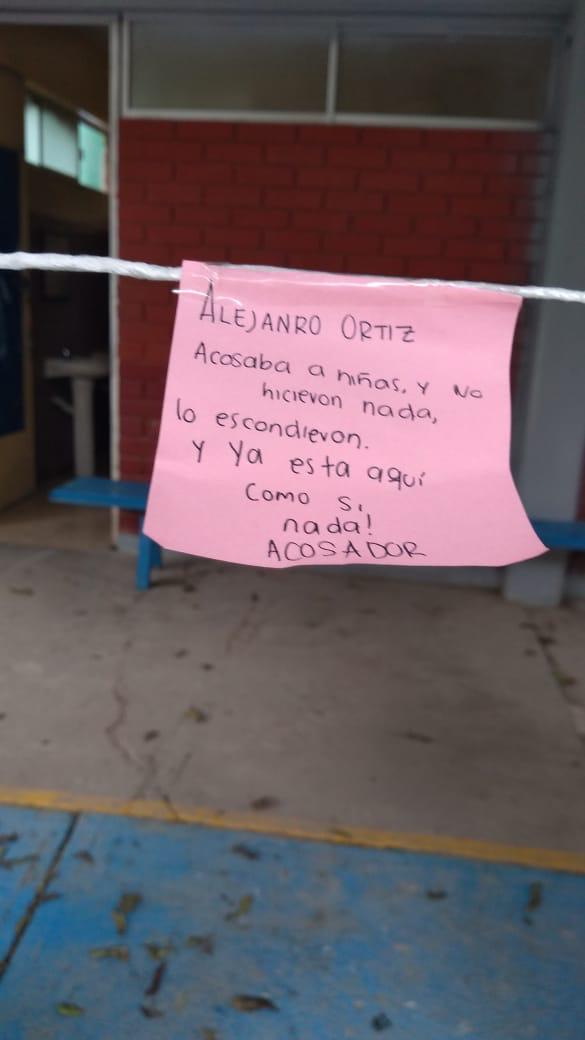 ALEJANRO ORTIZ
Acosaba a niñas, y no
hicieron nada,
lo escondieron.
y ya esta aquí
como si
nada!
ACOSADOR